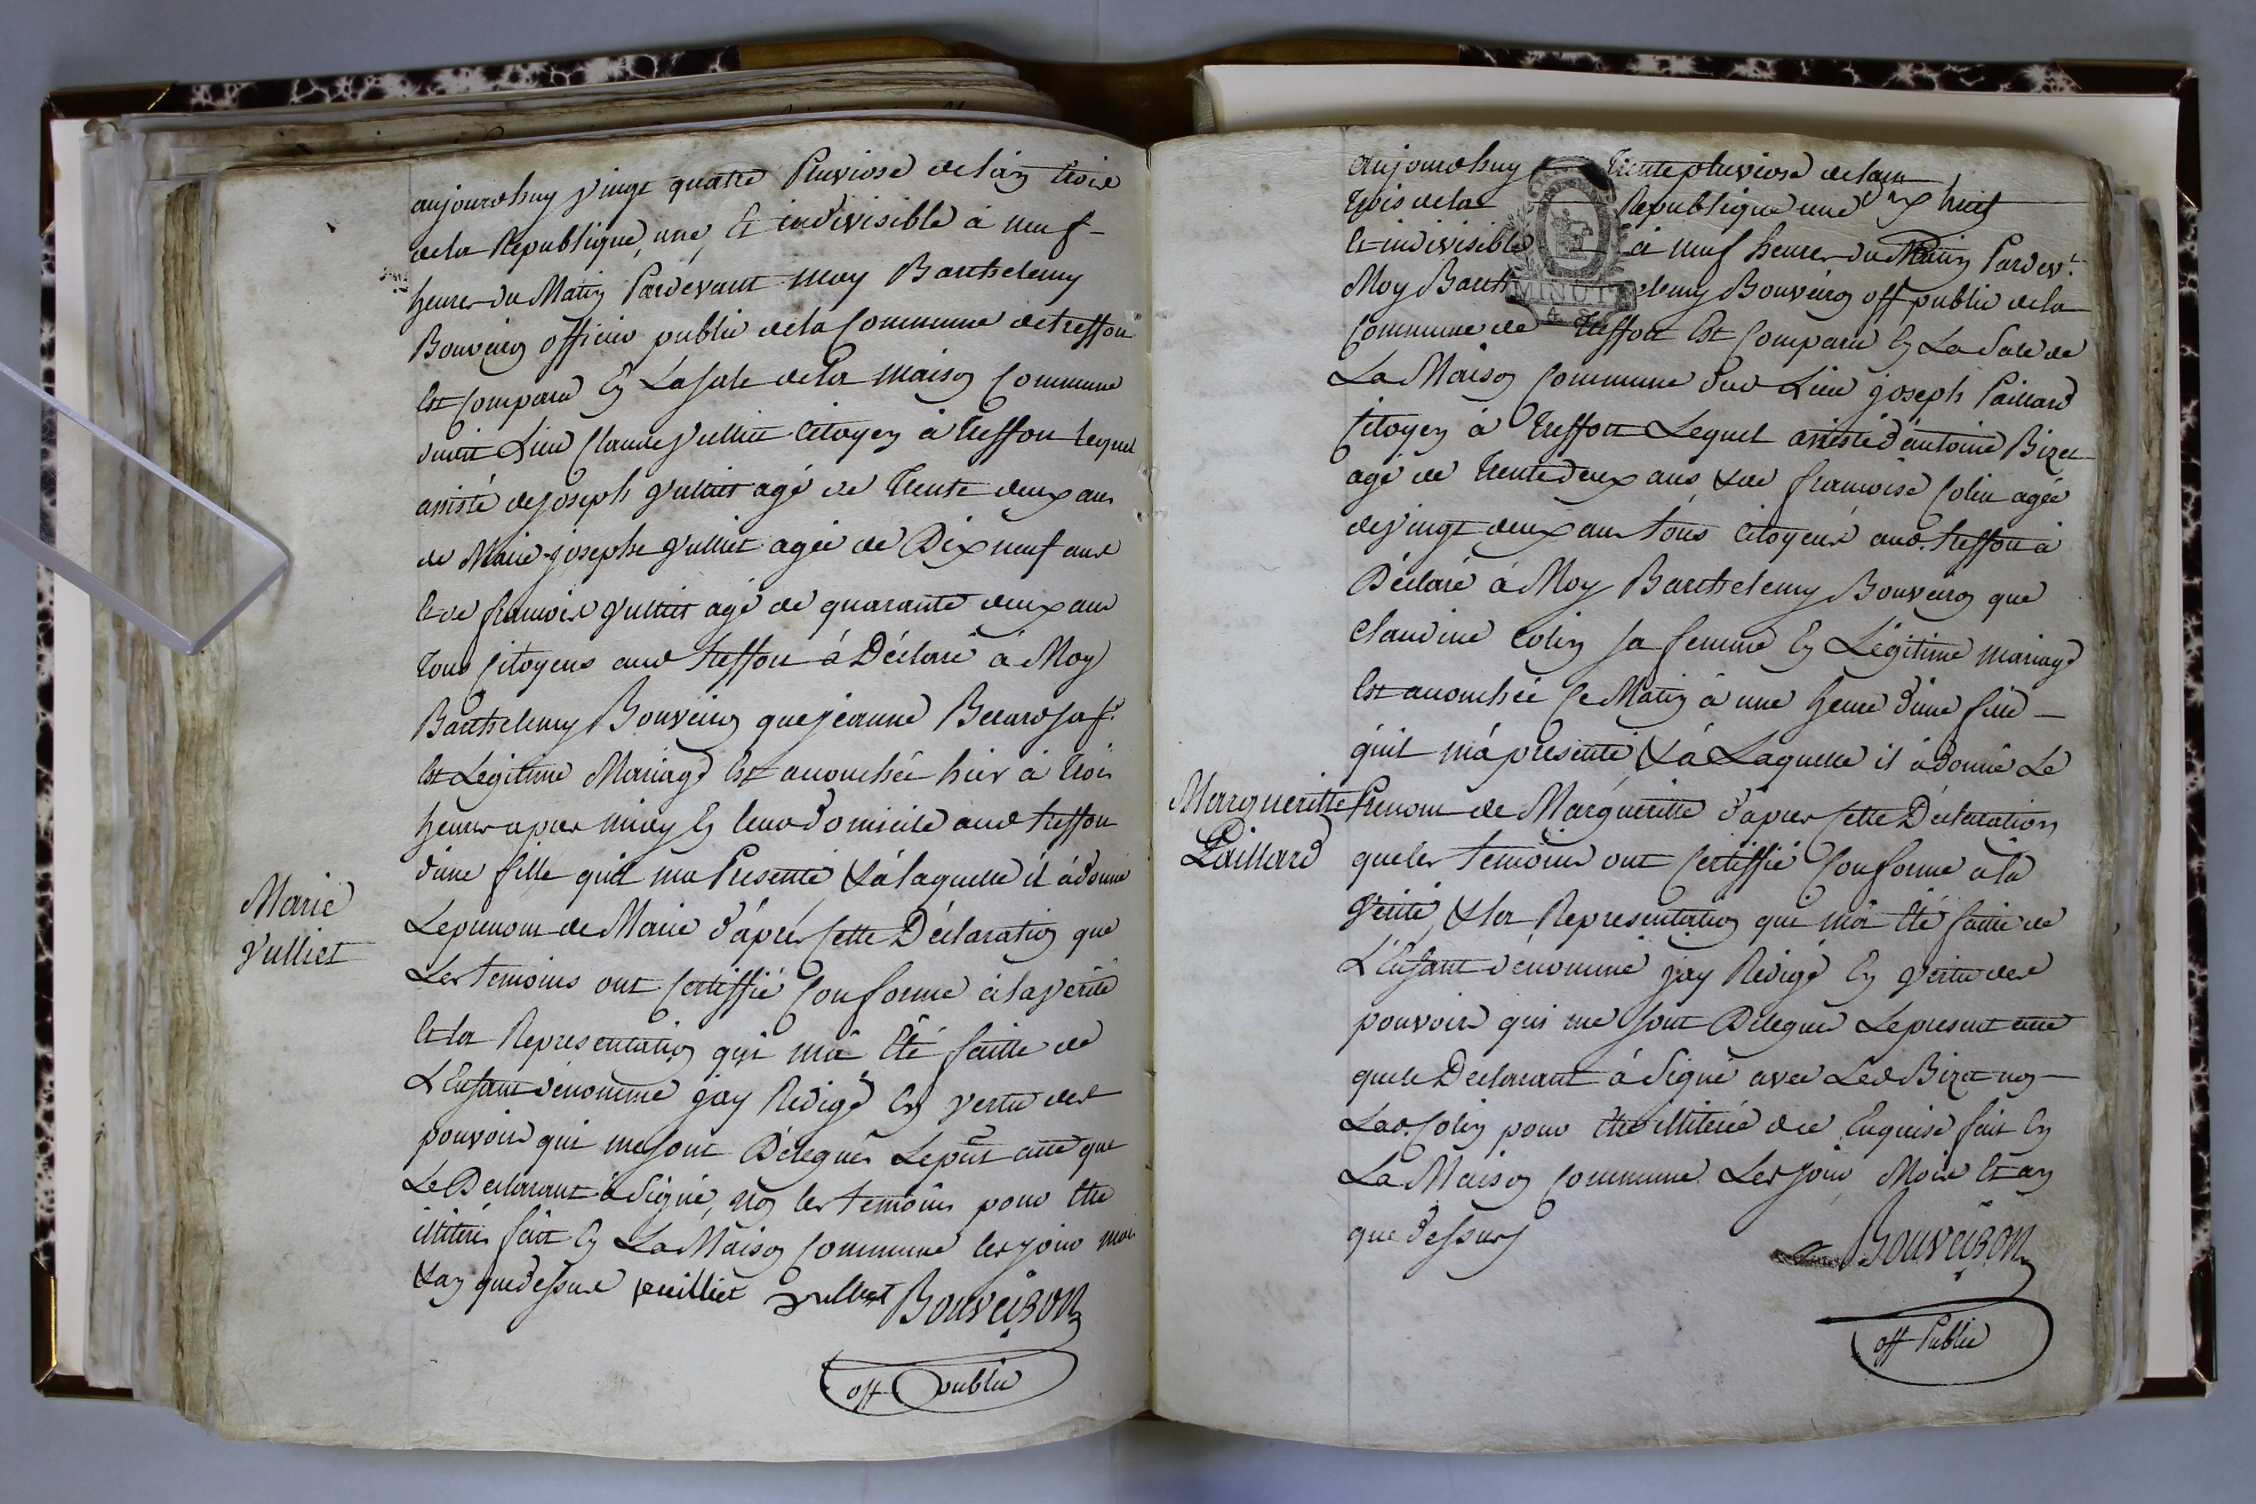 aujourdhuy vingt quatre Pluviose de l'an trois
de la Republique, une, et indivisible à neuf
heures du Matin Pardevant moy Barthelemy
Bouveiron officier public de la Commune de treffort
Est comparu En La Sale de la Maison Commune
dudit Lieu Claude Vulliet Citoyen à treffort lequel
assisté de joseph Vulliet agé de trente deux ans
de Marie-josephe Vulliet agée de Dix neuf ans
et de francois Vulliet agé de quarante deux ans
tous Citoyens aud treffort à Déclaré à Moy
Barthelemy Bouveiron que jeanne Berard sa fe
Est Legitime Mariage Est accouchée hier à trois
heures apres midy En leur domicile aud treffort
d'une fille quil ma Presenté & à laquelle il à donné
Marie
Vulliet
Le prenom de Marie d'après Cette Déclaration que
Les temoins ont Certiffié Conforme à la vérité
Et la Representation qui m'a Eté faitte de
L'Enfant dénommé jay Redigé En vertu des
pouvoirs qui me sont Délegués Le pnt acte que
Le Declarant à Signé, non les temoins pour être
illitérés fait En La Maison Commune les jour mois
& an que dessus veuilliet Vulliet Bouveiron
off public
aujourdhuy trente pluviose de l'an
trois de la Republique une
huit
Et indivisible à neuf heures du Matin Pardevt
Moy Barthelemy Bouveiron off public de la
MINUTE
Commune de treffort Est Comparu En La Sale de
La Maison Commune dud Lieu joseph Paillard
Citoyen à treffort Lequel assisté d'antoine Bizet
agé de trente deux ans & de francoise Colin agée
de vingt deux ans tous Citoyens aud. treffort à
Déclaré à Moy Barthelemy Bouveiron que
Claudine Colin sa femme En Légitime mariage
Est accouchée Ce Matin à une heure d'une fille
quil m'a presenté & à Laquelle il à donné Le
Margueritte
Paillard
Prenom de Margueritte d'apres Cette Déclaration
que les temoins ont Certiffié Conforme à la
Verité & la Representation qui m'a Eté faitte de
L'Enfant dénommé jay Redigé En vertu des
pouvoirs qui me sont Delegués Le present acte
que le Declarant à Signé avec Led Bizet non
Lad. Colin pour être illiterée de ce Enquise fait En
La Maison Commune Les jour Mois Et an
que dessus
Bouveiron
off Public